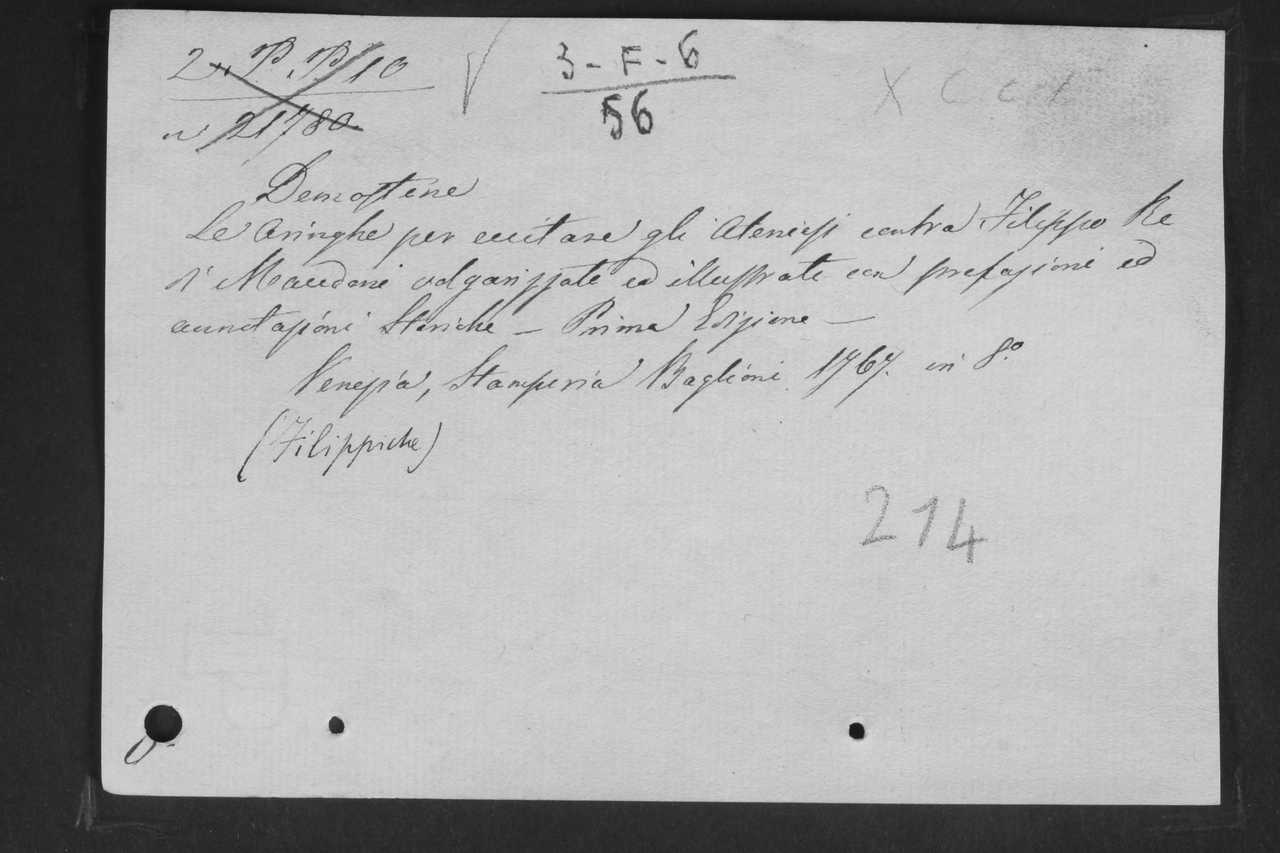 2. P. P. 10
n° 21780
3-F-6
56
Demostene
Le Aringhe per eccitare gli Ateniesi contra Filippo Re
di Macedoni volgarizzate ed illustrate con prefazioni ed
annotazioni Storiche - Prima Edizione -
Venezia, Stamperia Baglioni 1767. in 8.°
(Filippiche)
214